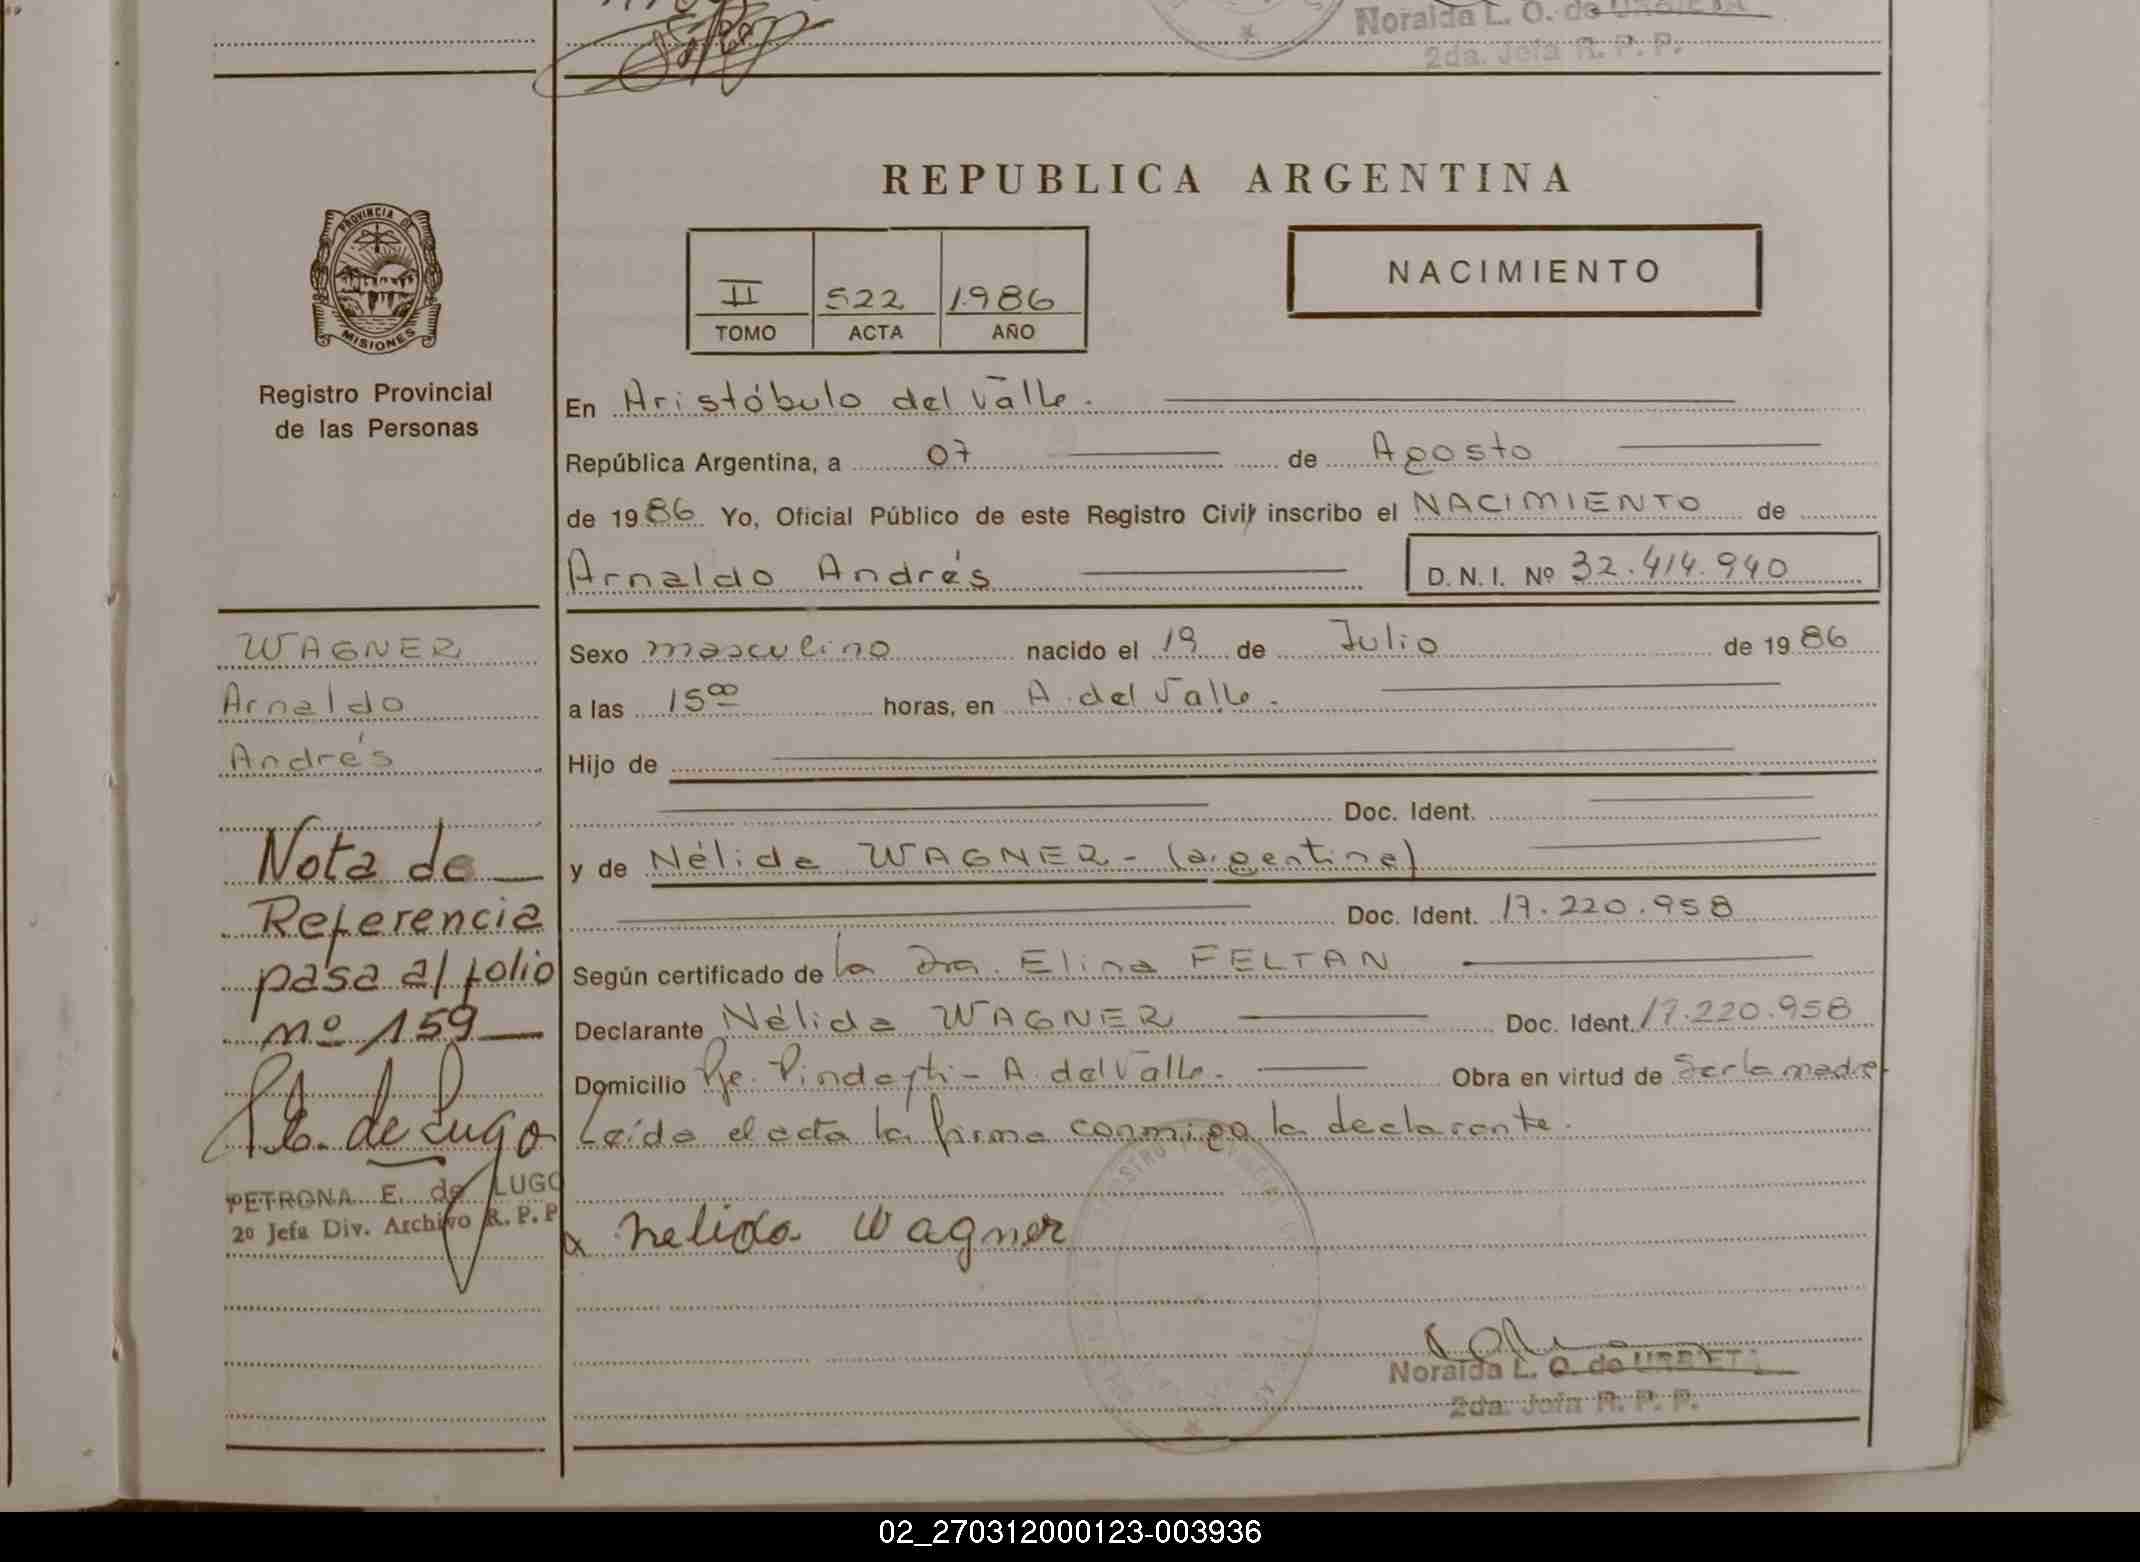 Noraida L. O. de URBIETA
2da. Jefa R. P. P.
PROVINCIA DE
MISIONES
Registro Provincial
de las Personas
REPUBLICA ARGENTINA
II 522 1986
TOMO ACTA AÑO
NACIMIENTO
En Aristóbulo del Valle.
República Argentina, a 07 de Agosto
de 1986 Yo, Oficial Público de este Registro Civil inscribo el NACIMIENTO de
Arnaldo Andrés D. N. I. Nº 32.414.940
WAGNER
Arnaldo
Andrés
Sexo masculino nacido el 19 de Julio de 1986
a las 15 00 horas, en A. del Valle.
Hijo de
Doc. Ident.
y de Nélida WAGNER - (argentina)
Doc. Ident. 17.220.958
Según certificado de la Dra. Elina FELTAN
Declarante Nélida WAGNER Doc. Ident. 17.220.958
Domicilio Pje. Pindayti - A. del Valle. Obra en virtud de ser la madre
Leída el acta la firma conmigo la declarante.
Nota de
Referencia
pasa al folio
nº 159
de Lugo
PETRONA E. de LUGO
2º Jefa Div. Archivo R. P. P.
x nelida wagner
Noraida L. O. de URBIETA
2da. Jefa R. P. P.
02_270312000123-003936